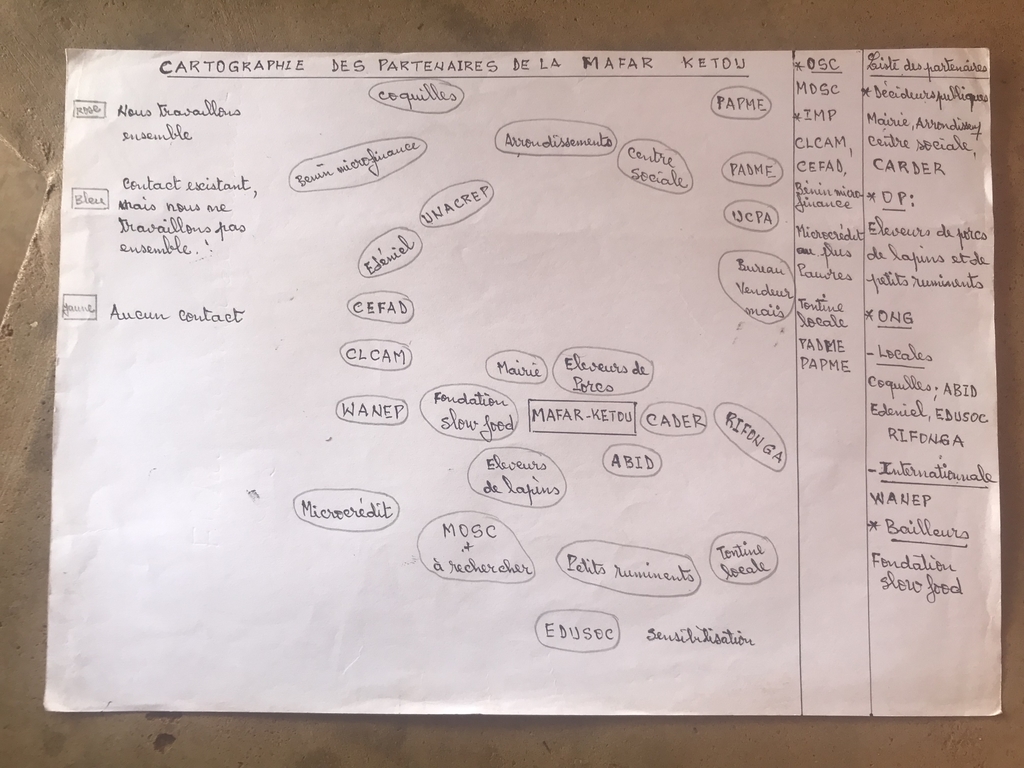 CARTOGRAPHIE DES PARTENAIRES DE LA MAFAR KETOU
rose
Nous travaillons
ensemble
Bleu
Contact existant,
mais nous ne
travaillons pas
ensemble.!
jaune
Aucun contact
coquilles
PAPME
Arrondissements
Bénin microfinance
Centre
sociale
PADME
UNACREP
UCPA
Edéniel
Bureau
Vendeur
maïs
CEFAD
CLCAM
Mairie
Eleveurs de
Porcs
WANEP
Fondation
slow food
MAFAR-KETOU
CADER
RIFONGA
ABID
Eleveurs
de lapins
Microcrédit
MOSC
+
à rechercher
Petits ruminents
Tontine
locale
EDUSOC
Sensibilisation
* OSC
MOSC
* IMP
CLCAM,
CEFAD,
Bénin micro
finance
Microcrédit
au plus
Pauvres
Tontine
locale
PADME
PAPME
Liste des partenaires
* Décideurs publiques
Mairie, Arrondissey
centre sociale,
CARDER
* OP:
Eleveurs de porcs
de lapins et de
petits ruminents
* ONG
- Locales
Coquilles, ABID
Edeniel, EDUSOC
RIFONGA
- Internationnale
WANEP
* Bailleurs
Fondation
slow food